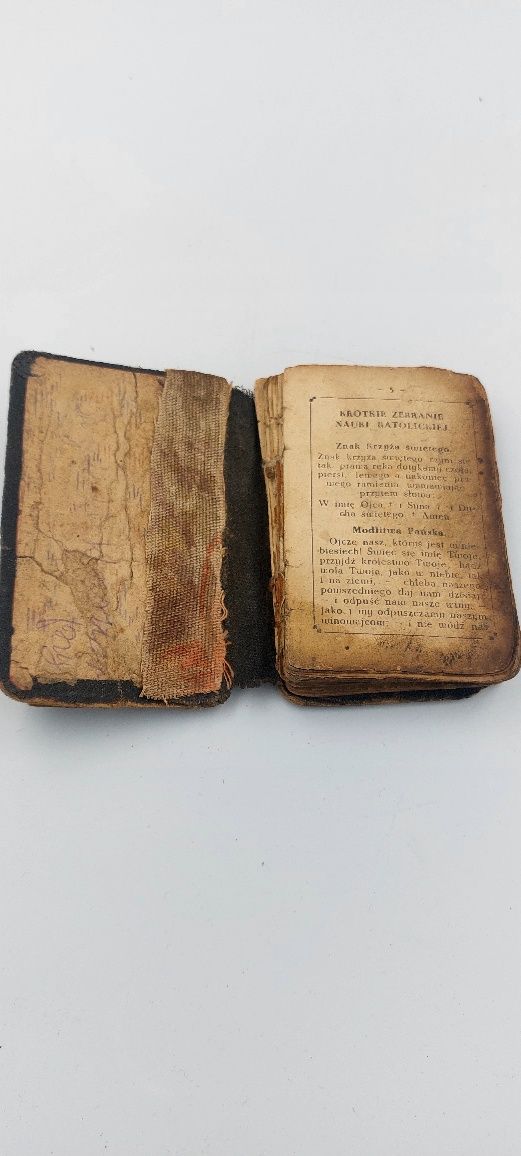 - 5 -
KRÓTKIE ZEBRANIE
NAUKI KATOLICKIEJ
Znak Krzyża świętego.
Znak krzyża świętego robimy
tak: prawą ręką dotykamy czoła,
piersi, lewego a nakoniec pra-
wego ramienia wymawiając
przytem słowa:
W imię Ojca † i Syna † i Du-
cha świętego † Amen.
Modlitwa Pańska.
Ojcze nasz, któryś jest w nie-
biesiech! Święć się imię Twoje,
przyjdź królestwo Twoje, bądź
wola Twoja, jako w niebie, tak
i na ziemi, — chleba naszego
powszedniego daj nam dzisiaj
— i odpuść nam nasze winy, —
jako i my odpuszczamy naszym
winowajcom; — i nie wódź nas